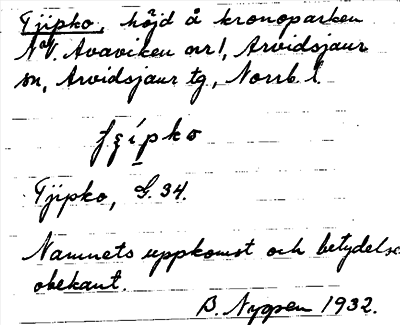 Tjipko, höjd å kronoparken
N.V. Avaviken nr 1, Arvidsjaur
sn, Arvidsjaur tg, Norrb. l.
Tjipko, G. 34.
Namnets uppkomst och betydelse
obekant.
B. Nygren 1932.